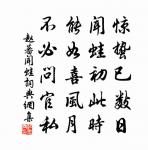 惊蛰已数日
闻蛙初此时
能如喜风月
不必问官私
赵蕃闻蛙词典网集